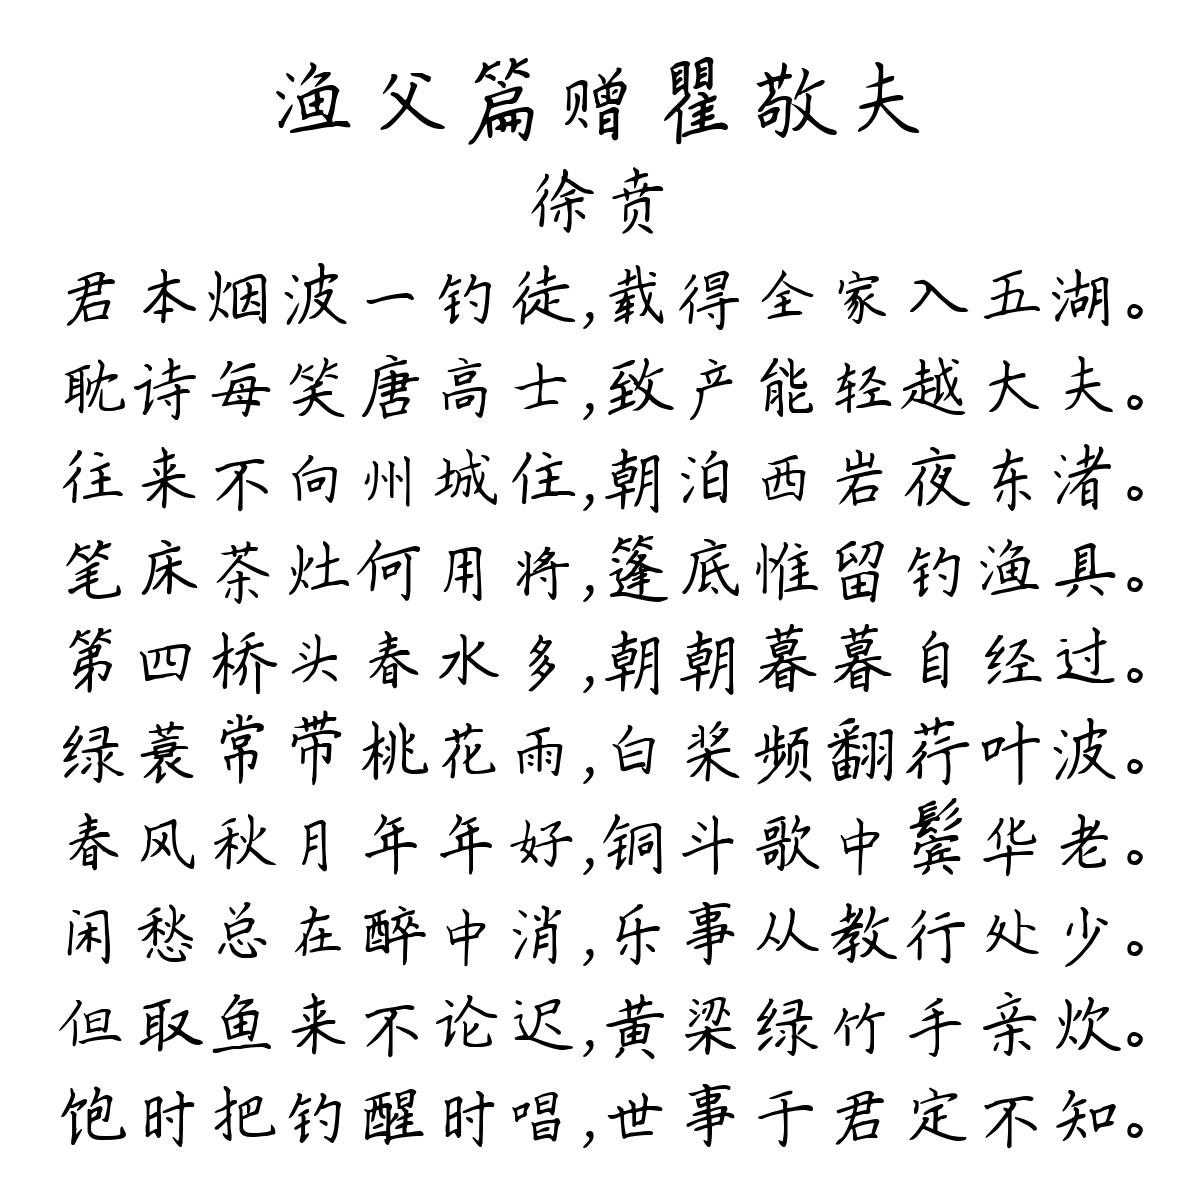 渔父篇赠瞿敬夫
徐贲
君本烟波一钓徒,载得全家入五湖。
耽诗每笑唐高士,致产能轻越大夫。
往来不向州城住,朝泊西岩夜东渚。
笔床茶灶何用将,篷底惟留钓渔具。
第四桥头春水多,朝朝暮暮自经过。
绿蓑常带桃花雨,白桨频翻荇叶波。
春风秋月年年好,铜斗歌中鬓华老。
闲愁总在醉中消,乐事从教行处少。
但取鱼来不论迟,黄梁绿竹手亲炊。
饱时把钓醒时唱,世事于君定不知。